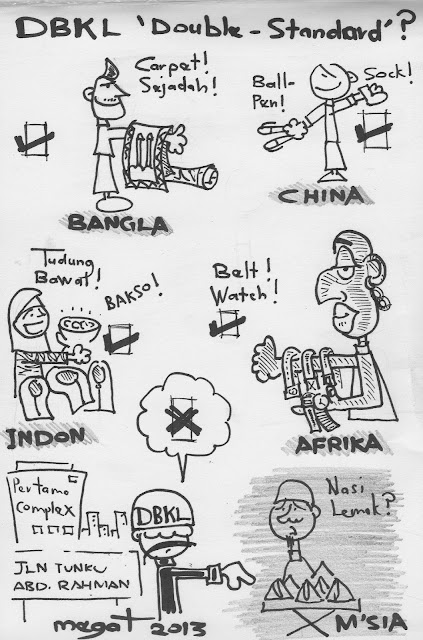 DBKL 'Double-Standard'?
Carpet!
Sejadah!
BANGLA
Ball-
Pen!
Sock!
CHINA
Tudung
Bawal!
BAKSO!
INDON
Belt!
Watch!
AFRIKA
Pertama
Complex
JLN TUNKU
ABD. RAHMAN
DBKL
Nasi
Lemak?
M'SIA
megat 2013